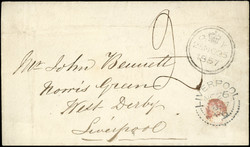 2
Mr John Bennett
Norris Green
West Derby
Liverpool
LIVERPOOL